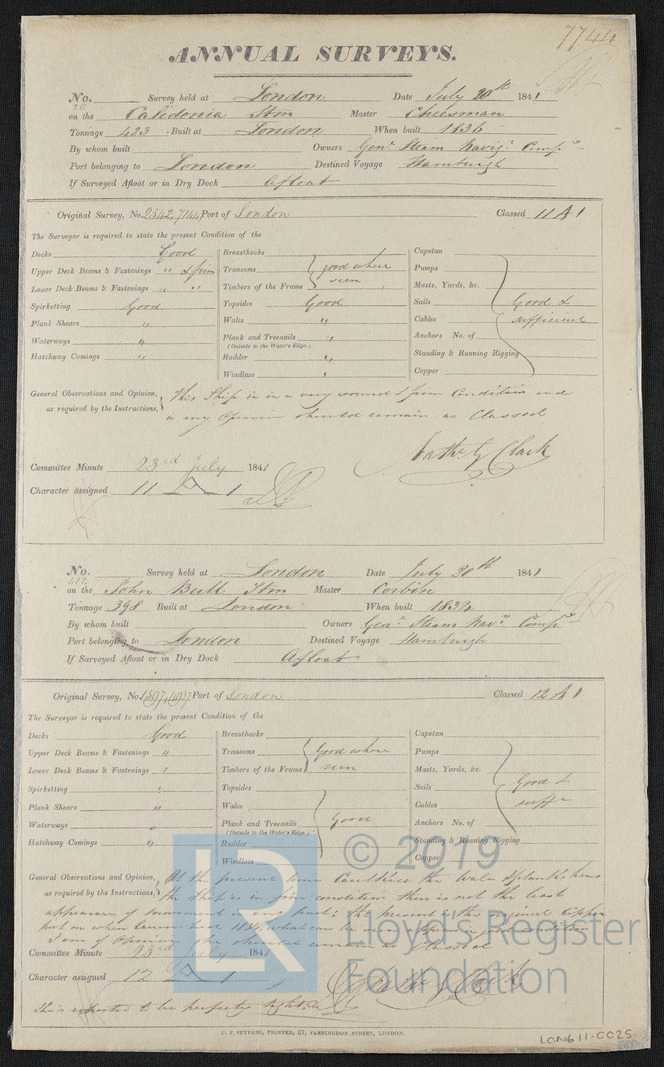 7744
ANNUAL SURVEYS.
No. 20 Survey held at London Date July 20th 1841
on the Caledonia Stm Master Cheesman
Tonnage 423 Built at London When built 1836
By whom built Owners Genl Steam Navign Compy
Port belonging to London Destined Voyage Hamburgh
If Surveyed Afloat or in Dry Dock Afloat
Original Survey, No. 2542, 7144 Port of London Classed 11 A 1
The Surveyor is required to state the present Condition of the
Decks Good Breasthooks Capstan
Upper Deck Beams & Fastenings " & firm Transoms good where Pumps
Lower Deck Beams & Fastenings " " Timbers of the Frame seen Masts, Yards, &c.
Spirketting Good Topsides Good Sails Good &
Plank Shears " Wales " Cables sufficient
Waterways " Plank and Treenails " Anchors No. of
(Outside to the Water's Edge)
Hatchway Comings " Rudder " Standing & Running Rigging
Windlass " Copper
General Observations and Opinion, This Ship is in a very sound & firm Condition and
as required by the Instructions, in my Opinion should remain as Classed
Nathl G Clark
Committee Minute 23rd July 1841
Character assigned 11 A 1
No. 412 Survey held at London Date July 20th 1841
on the John Bull Stm Master Corbin
Tonnage 398 Built at London When built 1834
By whom built Owners Genl Steam Navn Compy
Port belonging to London Destined Voyage Hamburgh
If Surveyed Afloat or in Dry Dock Afloat
Original Survey, No. Port of London Classed 12 A 1
The Surveyor is required to state the present Condition of the
Decks Good Breasthooks Capstan
Upper Deck Beams & Fastenings " Transoms Good where Pumps
Lower Deck Beams & Fastenings " Timbers of the Frame seen Masts, Yards, &c.
Spirketting " Topsides Sails Good &
Plank Shears " Wales Cables sufft
Waterways " Plank and Treenails Good Anchors No. of
(Outside to the Water's Edge)
Hatchway Comings " Rudder Standing & Running Rigging
Windlass Copper
General Observations and Opinion, At the present time Caulking the Wales & plank sheers
as required by the Instructions, the Ship is in fine condition there is not the least
appearance of movement in any part; the present is the original Copper
put on when 1834, what can be seen
I am of Opinion she should as Classed
Committee Minute 23rd July 1841
Character assigned 12 A 1
Nathl G Clark
She is reported to be perfectly tight
C. F. SEYFANG, PRINTER, 57, FARRINGDON STREET, LONDON.
LON611-0025
LR
© 2019
Lloyd's Register
Foundation